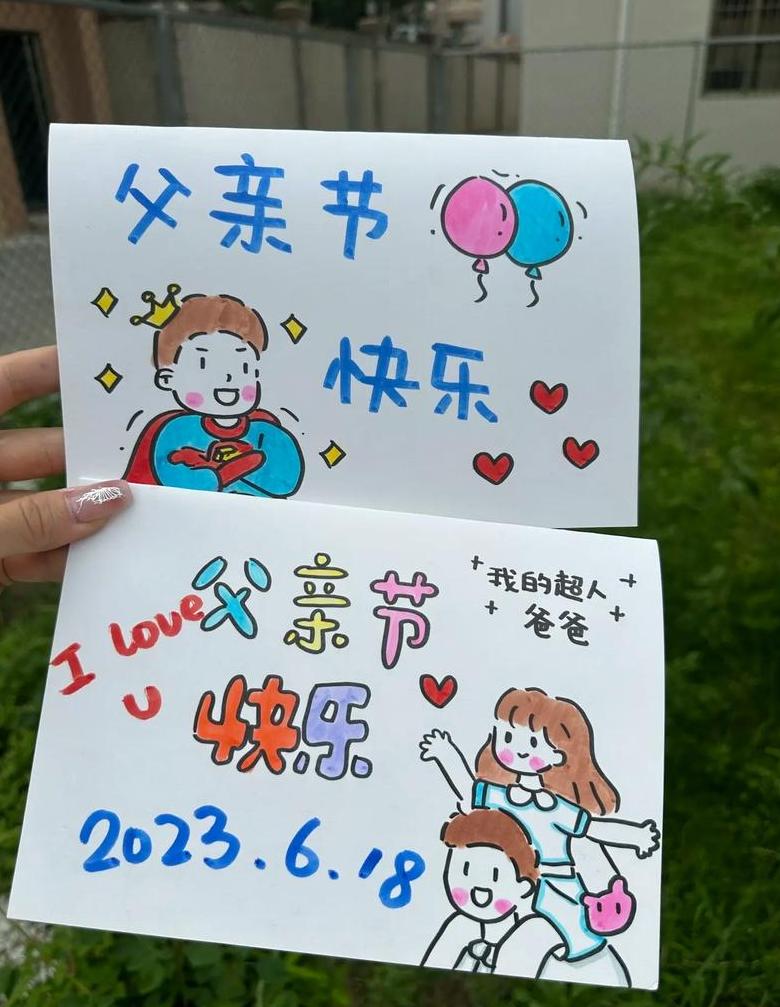 父亲节
快乐
父亲节
我的超人
爸爸
I love
U
快乐
2023.6.18